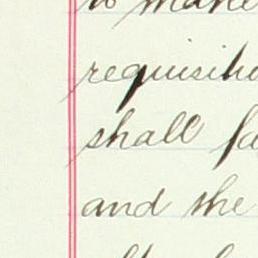 to make
requisitio
shall fa
and the